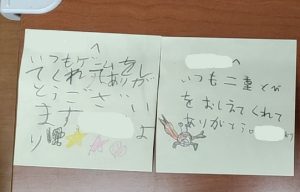 へ
いつも
てくれてありが
とうござい
ます
より
へ
いつも二重とび
をおしえてくれて
ありがとう。